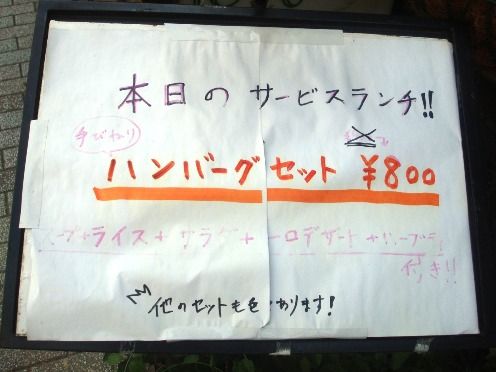 本日のサービスランチ!!
手びねり
ハンバーグセット ¥800
プ+ライス+サラダ+一口デザート+ハーブテ
付き!!
他のセットも色々あります!